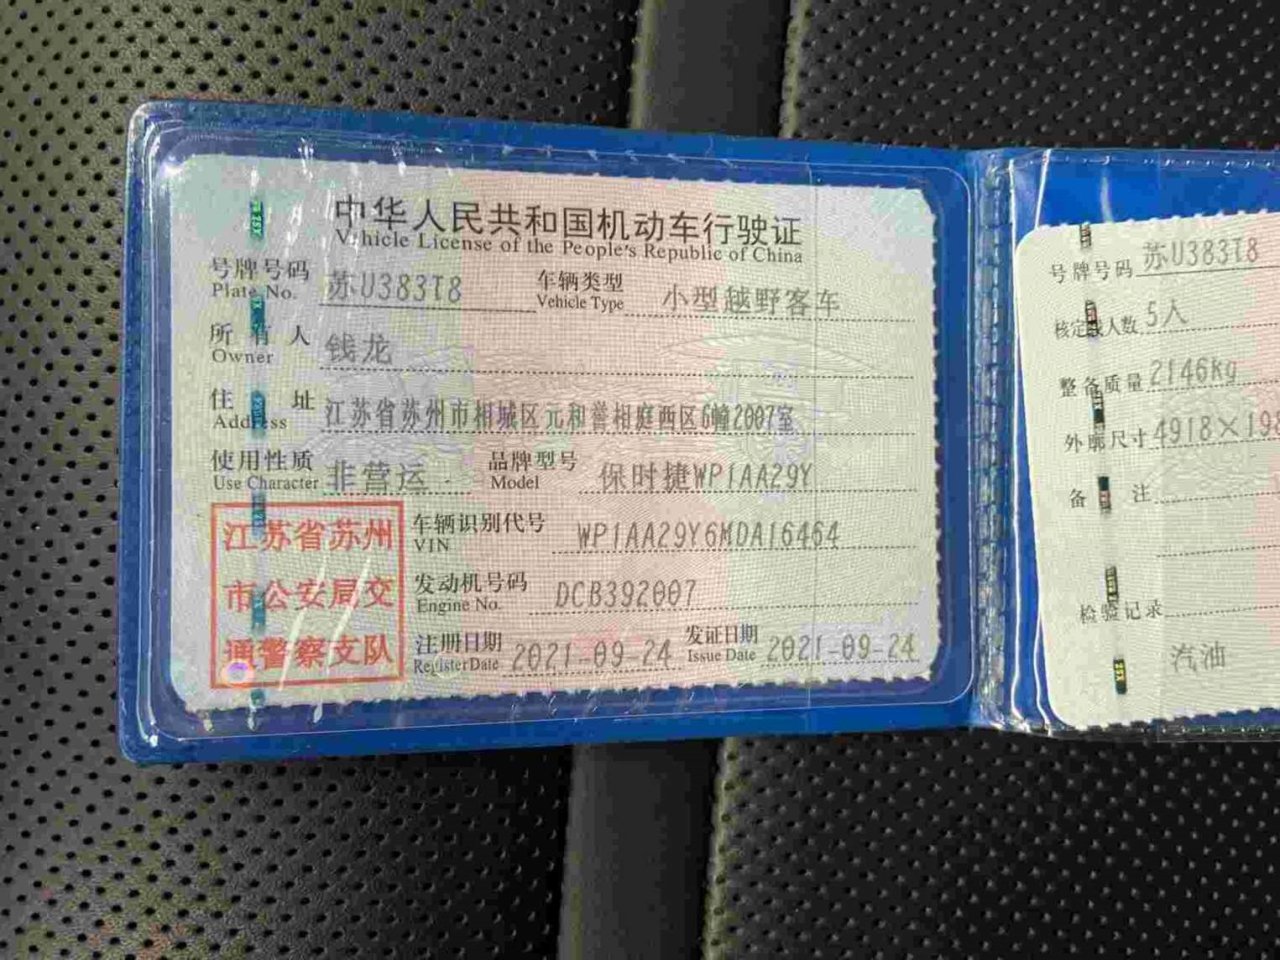 中华人民共和国机动车行驶证
Vehicle License of the People's Republic of China
号牌号码 苏U383T8 车辆类型 小型越野客车
Plate No. Vehicle Type
所有人 钱龙
Owner
住址 江苏省苏州市相城区元和誉相庭西区6幢2007室
Address
使用性质 非营运 品牌型号 保时捷WP1AA29Y
Use Character Model
车辆识别代号 WP1AA29Y6MDA16464
VIN
发动机号码 DCB392007
Engine No.
注册日期 2021-09-24 发证日期 2021-09-24
Register Date Issue Date
江苏省苏州
市公安局交
通警察支队
号牌号码 苏U383T8
核定载人数 5人
整备质量 2146kg
外廓尺寸 4918×198
备注
检验记录
汽油